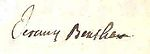 Jeremy Bentham